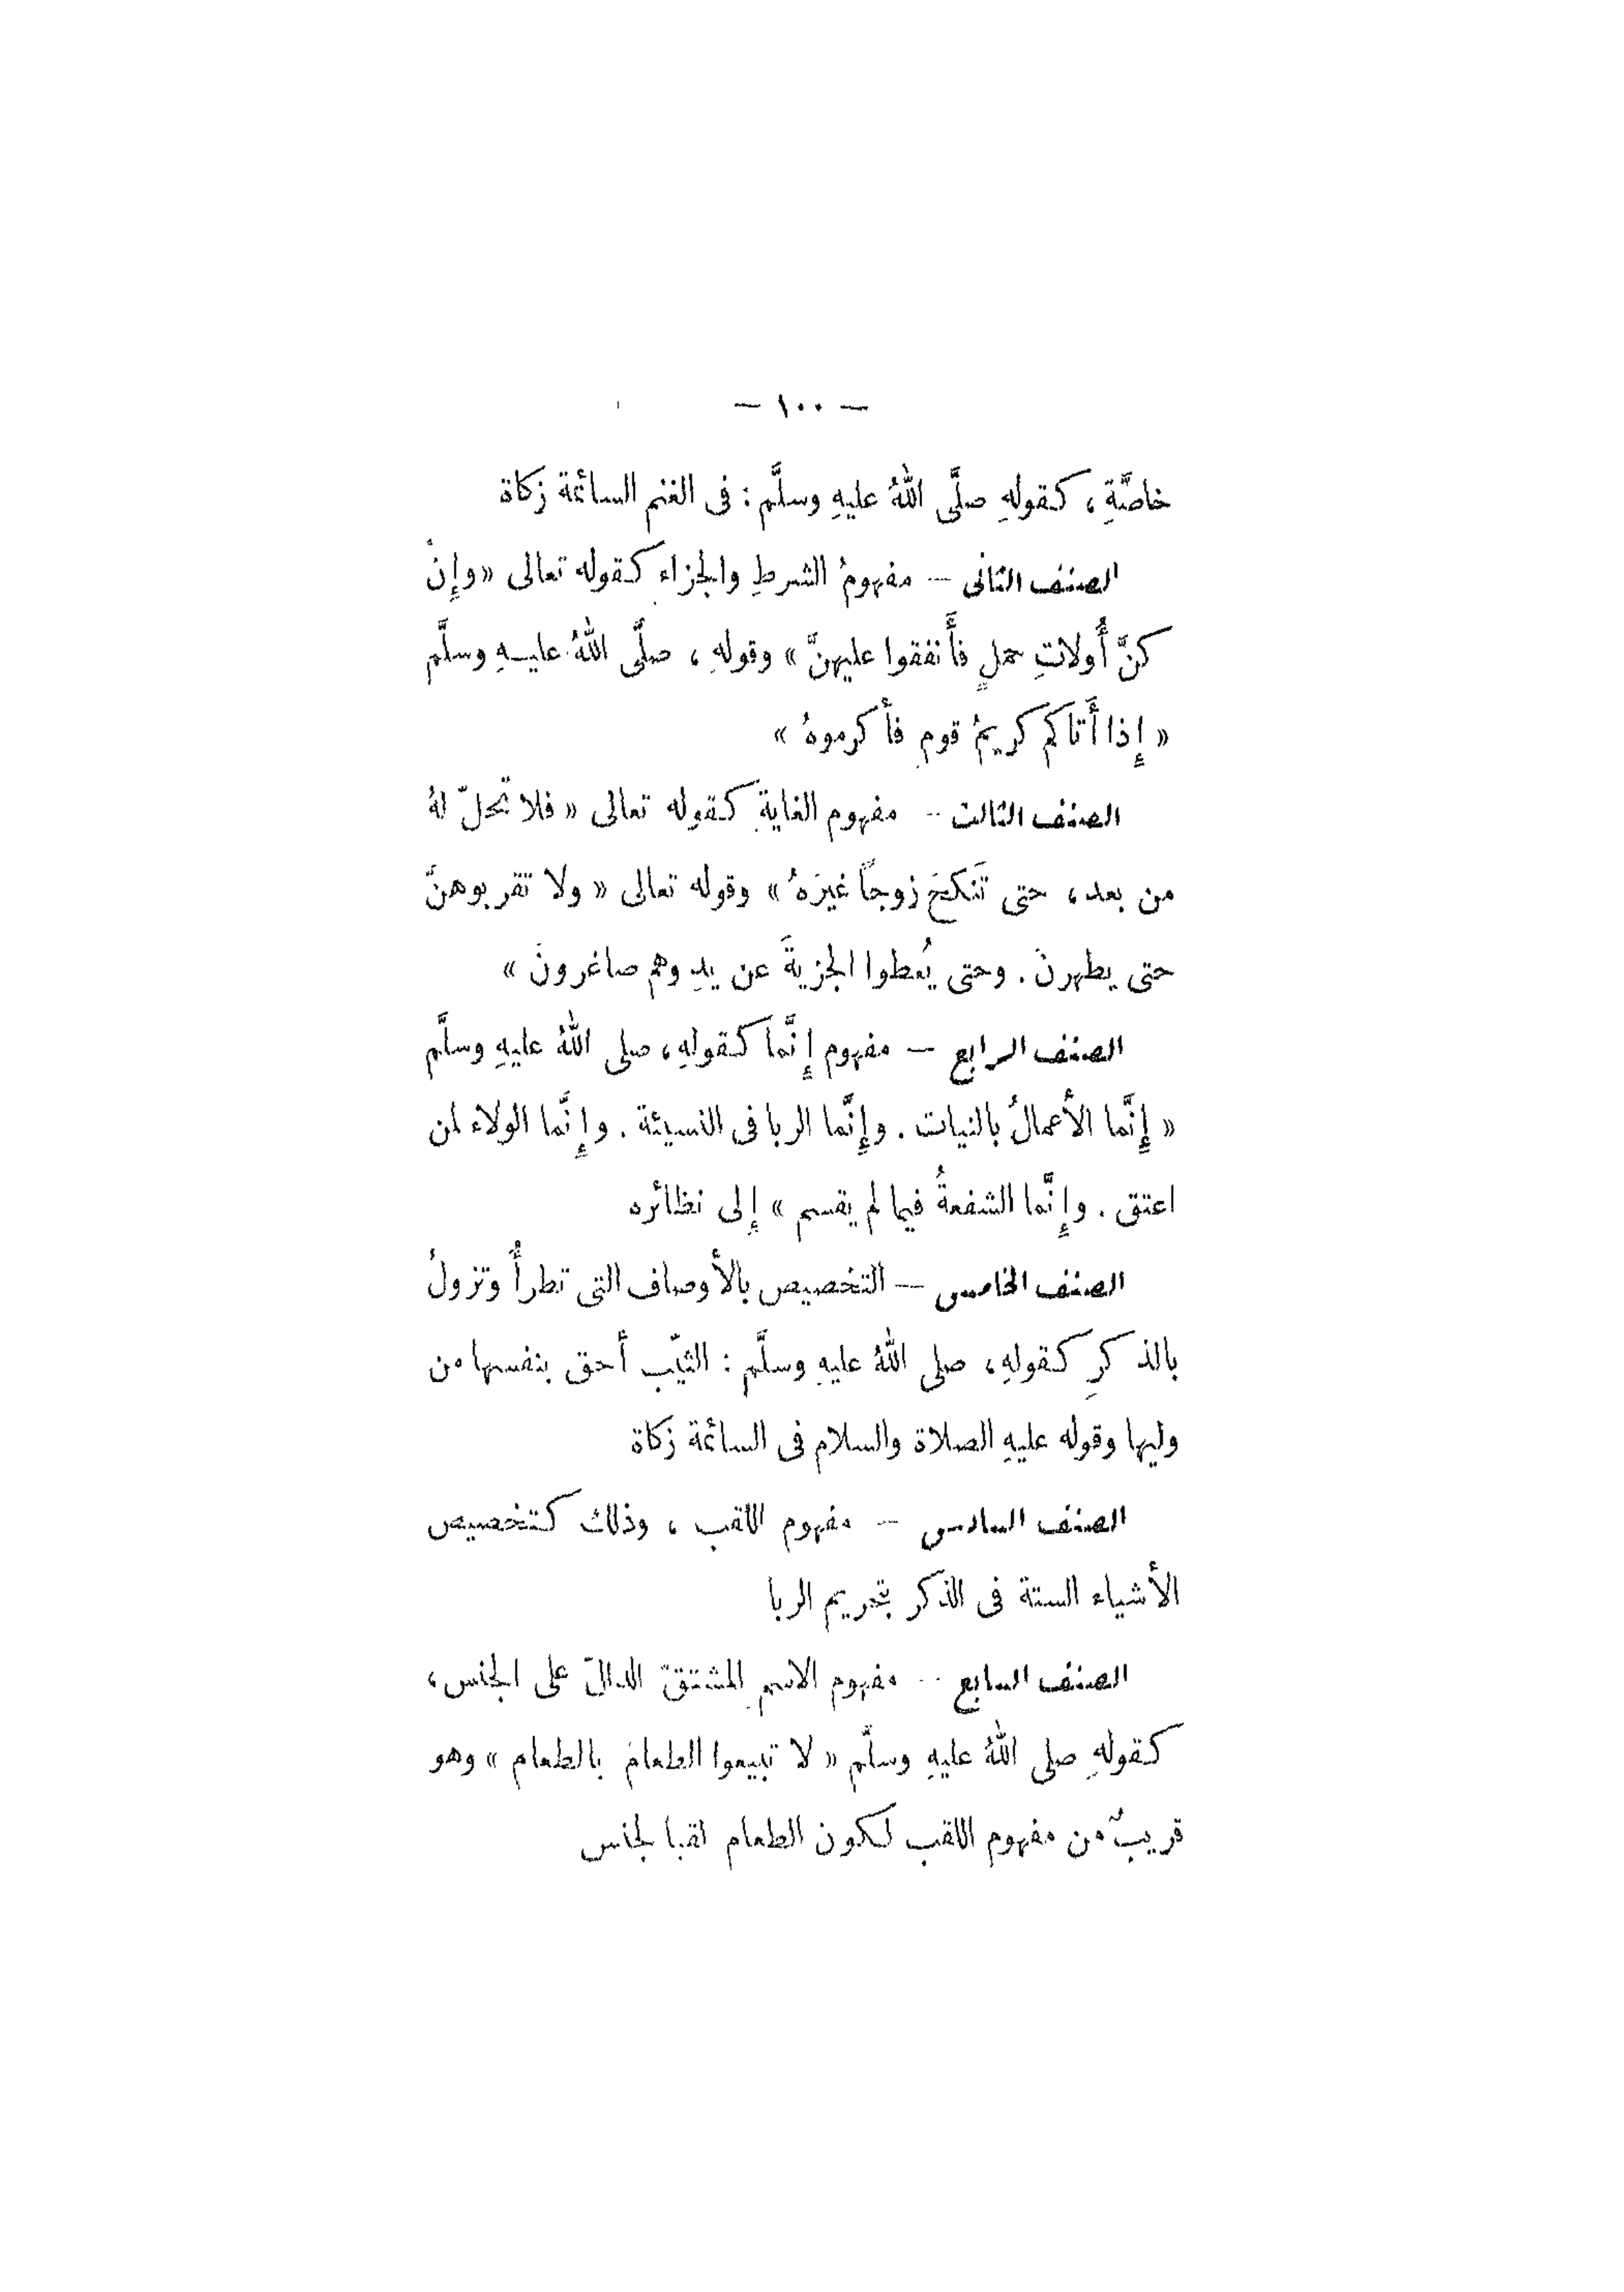 — ١٠٠ —
خاصَّةِ ، كقولهِ صلَّى اللهُ عليهِ وسلَّم : فى الغنم السائمة زكاة
الصنف الثانى — مفهومُ الشرطِ والجزاء كقوله تعالى «وإِنْ
كنَّ أُولاتِ حملٍ فأَنفقوا عليهنَّ » وقولهِ ، صلَّى اللهُ عليـهِ وسلَّم
« إِذا أَتاكم كريمُ قومٍ فأكرموهُ »
الصنف الثالث — مفهوم الغايةِ كقوله تعالى « فلا تحلّ لهُ
من بعد ، حتى تَنكحَ زوجاً غيرَهُ » وقوله تعالى « ولا تقربوهنَّ
حتى يطهرنَ . وحتى يُعطوا الجزيةَ عن يدٍ وهم صاغرونَ »
الصنف الرابع — مفهوم إِنَّما كقولهِ ، صلى اللهُ عليهِ وسلَّم
« إِنَّما الأعمالُ بالنيات . وإِنَّما الربا فى النسيئة . وإِنَّما الولاء لمن
اعتق . وإِنَّما الشفعةُ فيما لم يقسم » إِلى نظائره
الصنف الخامس — التخصيص بالأوصاف التى تطرأُ وتزولُ
بالذكرِ كقولهِ ، صلى اللهُ عليهِ وسلَّم : الثيّب أحق بنفسها من
وليها وقوله عليهِ الصلاة والسلام فى السائمة زكاة
الصنف السادس — مفهوم اللقب ، وذلك كتخصيص
الأشياء الستة فى الذكر بتحريم الربا
الصنف السابع — مفهوم الاسمِ المشتقّ الدالّ على الجنس ،
كقولهِ صلى اللهُ عليهِ وسلَّم « لا تبيعوا الطعامَ بالطعام » وهو
قريبٌ من مفهوم اللقب لكون الطعام لقبا لجنس